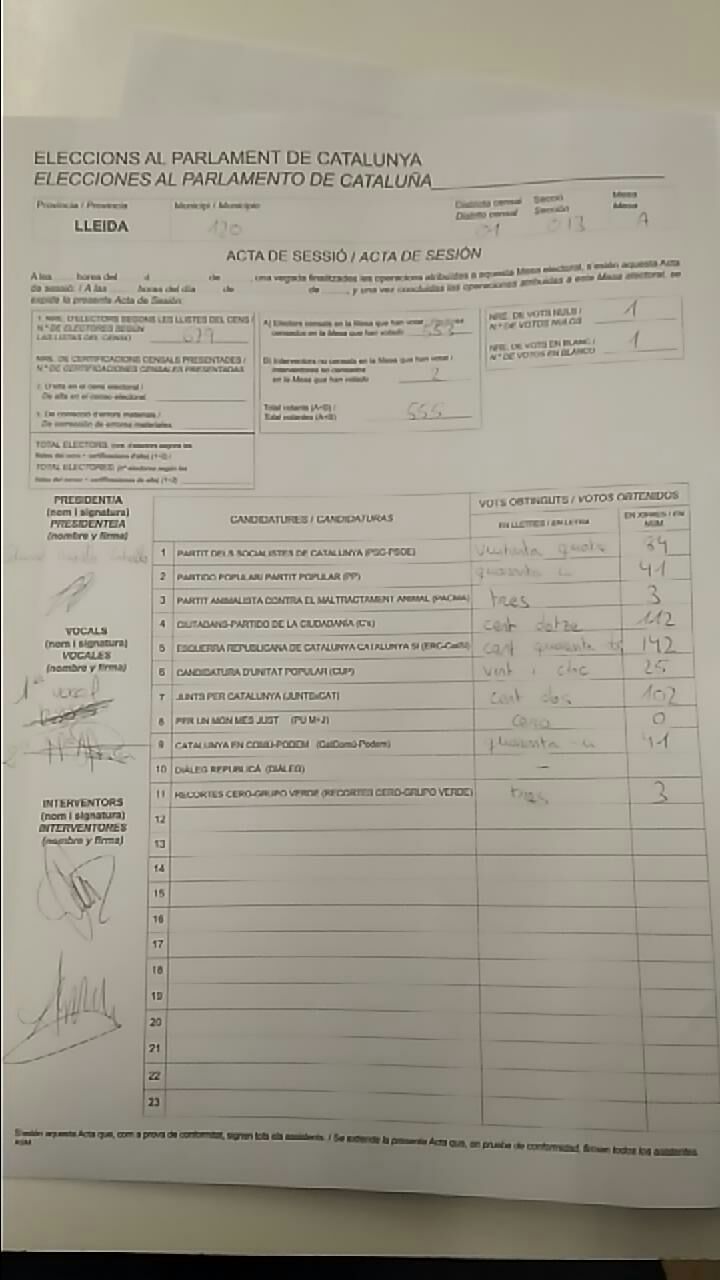 ELECCIONS AL PARLAMENT DE CATALUNYA
ELECCIONES AL PARLAMENTO DE CATALUÑA
Província / Provincia Municipi / Municipio Districte censal Secció Mesa
Distrito censal Sección Mesa
LLEIDA 120 01 013 A
ACTA DE SESSIÓ / ACTA DE SESIÓN
A les hores del d de , una vegada finalitzades les operacions atribuïdes a aquesta Mesa electoral, s'estén aquesta Acta
de sessió. / A las horas del día de de , y una vez concluidas las operaciones atribuidas a esta Mesa electoral, se
expide la presente Acta de Sesión.
1. NRE. D'ELECTORS SEGONS LES LLISTES DEL CENS /
N.º DE ELECTORES SEGÚN
LAS LISTAS DEL CENSO 679
NRE. DE CERTIFICACIONS CENSALS PRESENTADES /
N.º DE CERTIFICACIONES CENSALES PRESENTADAS
2. D'alta en el cens electoral /
De alta en el censo electoral
3. De correcció d'errors materials /
De corrección de errores materiales
TOTAL ELECTORS
TOTAL ELECTORES
A) Electors censats en la Mesa que han votat /
censados en la Mesa que han votado 553
B) Interventors no censats en la Mesa que han votat /
Interventores no censados
en la Mesa que han votado 2
Total votants (A+B) /
Total votantes (A+B) 555
NRE. DE VOTS NULS /
N.º DE VOTOS NULOS 1
NRE. DE VOTS EN BLANC /
N.º DE VOTOS EN BLANCO 1
PRESIDENT/A
(nom i signatura)
PRESIDENTE/A
(nombre y firma)
VOCALS
(nom i signatura)
VOCALES
(nombre y firma)
1ª vocal
INTERVENTORS
(nom i signatura)
INTERVENTORES
(nombre y firma)
CANDIDATURES / CANDIDATURAS VOTS OBTINGUTS / VOTOS OBTENIDOS
EN LLETRES / EN LETRA EN XIFRES / EN NÚM.
1 PARTIT DELS SOCIALISTES DE CATALUNYA (PSC-PSOE) quatre 84
2 PARTIDO POPULAR/ PARTIT POPULAR (PP) quaranta 41
3 PARTIT ANIMALISTA CONTRA EL MALTRACTAMENT ANIMAL (PACMA) tres 3
4 CIUTADANS-PARTIDO DE LA CIUDADANÍA (C's) cent dotze 112
5 ESQUERRA REPUBLICANA DE CATALUNYA CATALUNYA SÍ (ERC-CatSí) cent quaranta 142
6 CANDIDATURA D'UNITAT POPULAR (CUP) vint i cinc 25
7 JUNTS PER CATALUNYA (JUNTSxCAT) cent dos 102
8 PER UN MÓN MÉS JUST (PUM+J) cero 0
9 CATALUNYA EN COMÚ-PODEM (CatComú-Podem) quaranta-u 41
10 DIÀLEG REPUBLICÀ (DIÀLEG) -
11 RECORTES CERO-GRUPO VERDE (RECORTES CERO-GRUPO VERDE) tres 3
12
13
14
15
16
17
18
19
20
21
22
23
S'estén aquesta Acta que, com a prova de conformitat, signen tots els assistents. / Se extiende la presente Acta que, en prueba de conformidad, firman todos los asistentes.